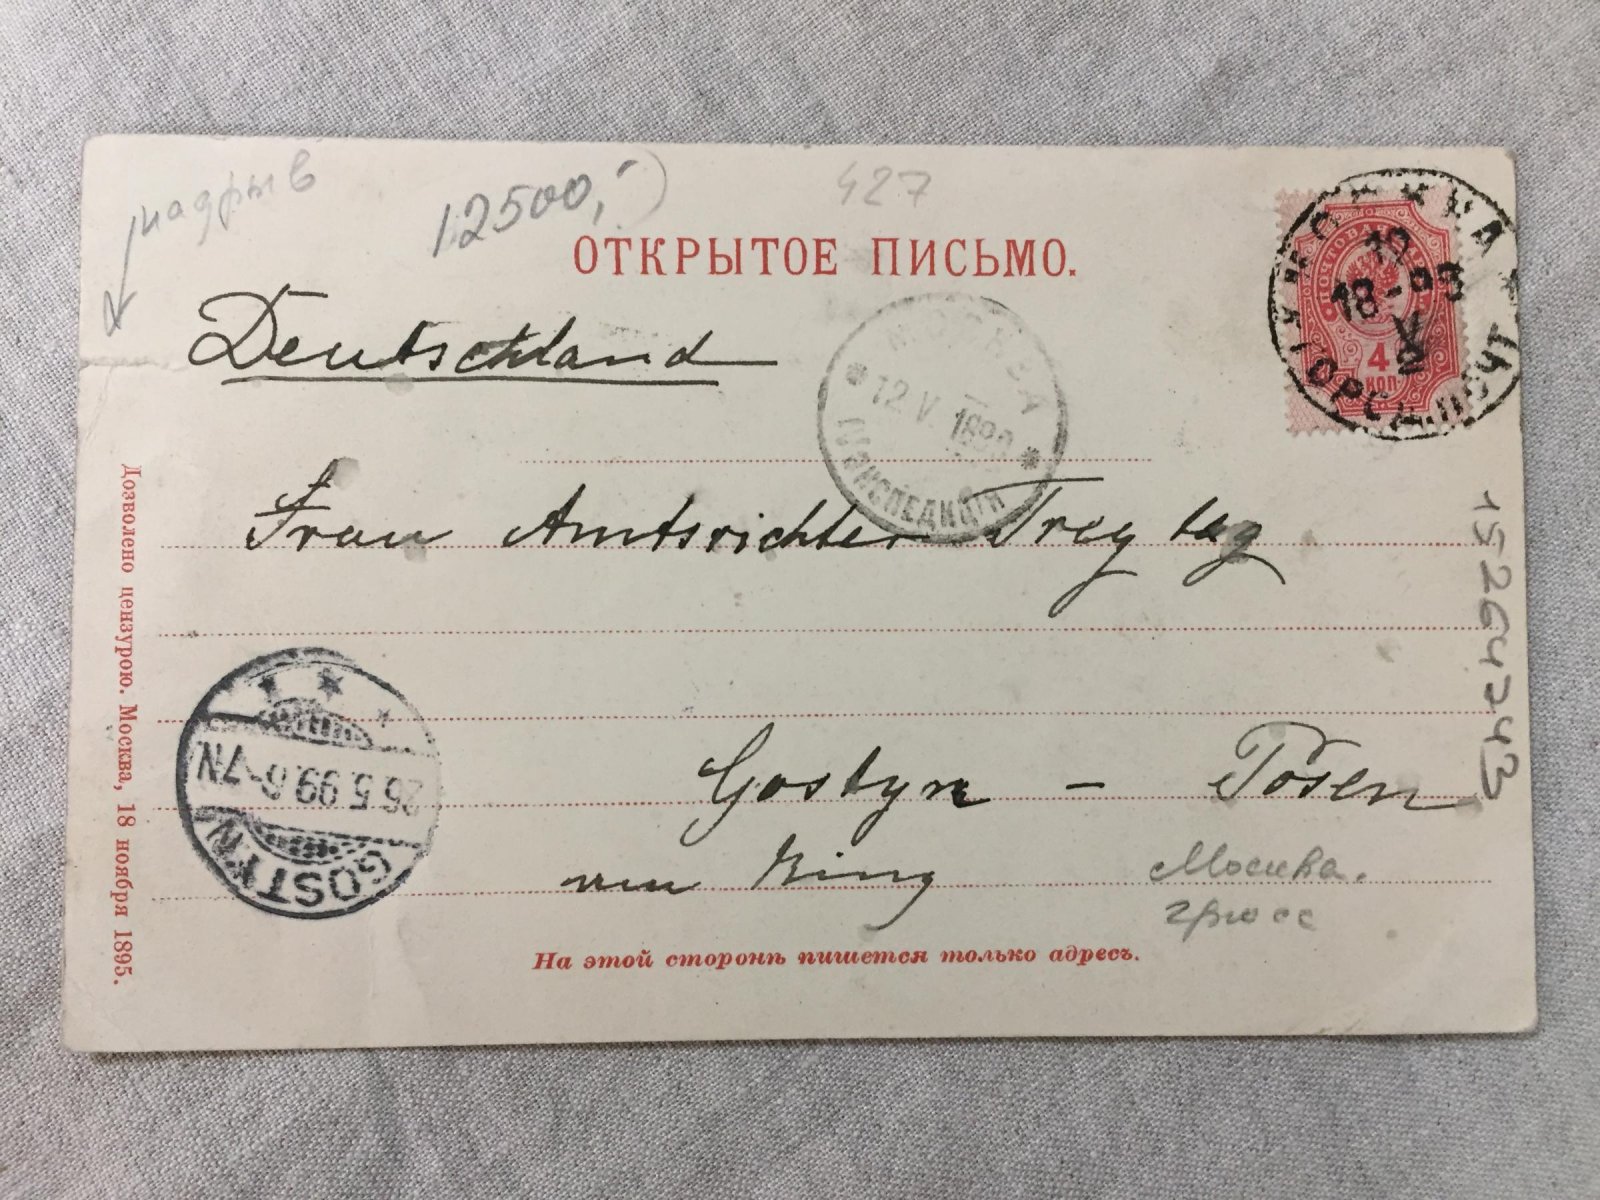 надрыв
12500,-
427
ОТКРЫТОЕ ПИСЬМО.
ПОЧТОВАЯ МАРКА
4
КОП
18-99
V
2
Deutschland
МОСКВА
12.V.1899
ЭКСПЕДИЦІЯ
Frau Amtsrichter Freytag
Gostyn - Posen
am Ring
26.5.99.6-7N
GOSTYN
Москва.
гросс
15264743
Дозволено цензурою. Москва, 18 ноября 1895.
На этой сторонѣ пишется только адресъ.